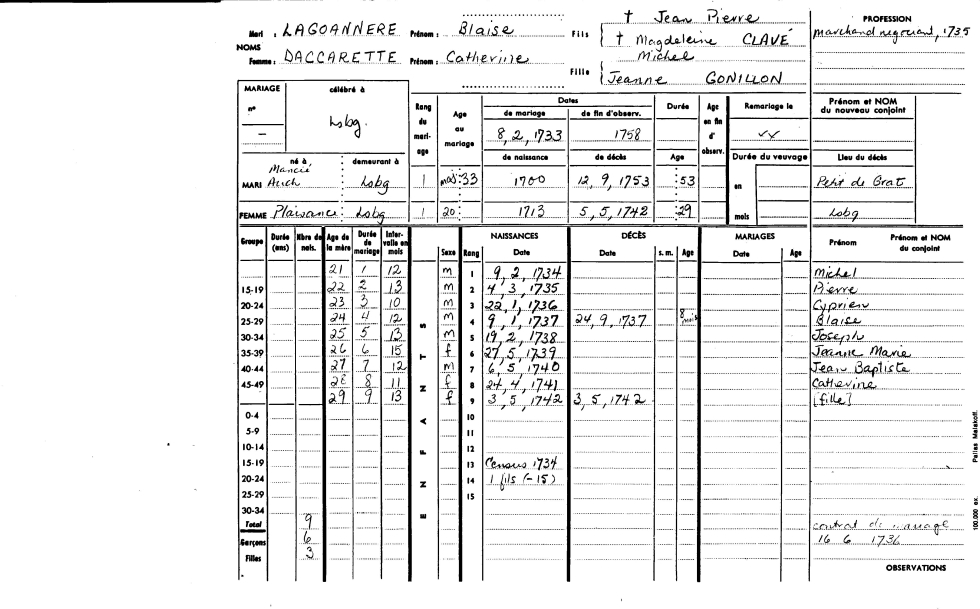 Mari : LAGOANNERE Prénom : Blaise Fils † Jean Pierre
† Magdeleine CLAVÉ
NOMS
Femme : DACCARETTE Prénom : Catherine Fille Michel
Jeanne GONILLON
PROFESSION
marchand negociant, 1735
MARIAGE célébré à Rang du mariage Age au mariage Dates Durée Age en fin d'observ. Remariage le Prénom et NOM du nouveau conjoint
n° de mariage de fin d'observ.
— Lsbg. 8, 2, 1733 1758
né à, demeurant à de naissance de décès Age Durée du veuvage Lieu du décès
MARI Auch Lsbg 1 maj : 33 1700 12, 9, 1753 53 en Petit de Grat
FEMME Plaisance : Lsbg 1 20 : 1713 5, 5, 1742 29 mois Lsbg
Groupe Durée (ans) Nbre de nais. Age de la mère Durée de mariage Intervalle en mois Sexe Rang NAISSANCES Date DÉCÈS Date s. m. Age MARIAGES Date Age Prénom Prénom et NOM du conjoint
ENFANTS
21 1 12 m 1 9, 2, 1734 Michel
15-19 22 2 13 m 2 4, 3, 1735 Pierre
20-24 23 3 10 m 3 22, 1, 1736 Cyprien
25-29 24 4 12 m 4 9, 1, 1737 24, 9, 1737 8 mois Blaise
30-34 25 5 13 m 5 19, 2, 1738 Joseph
35-39 26 6 15 f 6 27, 5, 1739 Jeanne Marie
40-44 27 7 12 m 7 6, 5, 1740 Jean Baptiste
45-49 28 8 11 f 8 24, 4, 1741 Catherine
29 9 13 f 9 3, 5, 1742 3, 5, 1742 [fille]
0-4 10
5-9 11
10-14 12
15-19 13 Census 1734
20-24 14 1 fils (-15)
25-29 15
30-34
Total 9 contrat de mariage
Garçons 6 16 6 1736
Filles 3
OBSERVATIONS
100.000 ex. Pallas Malakoff.